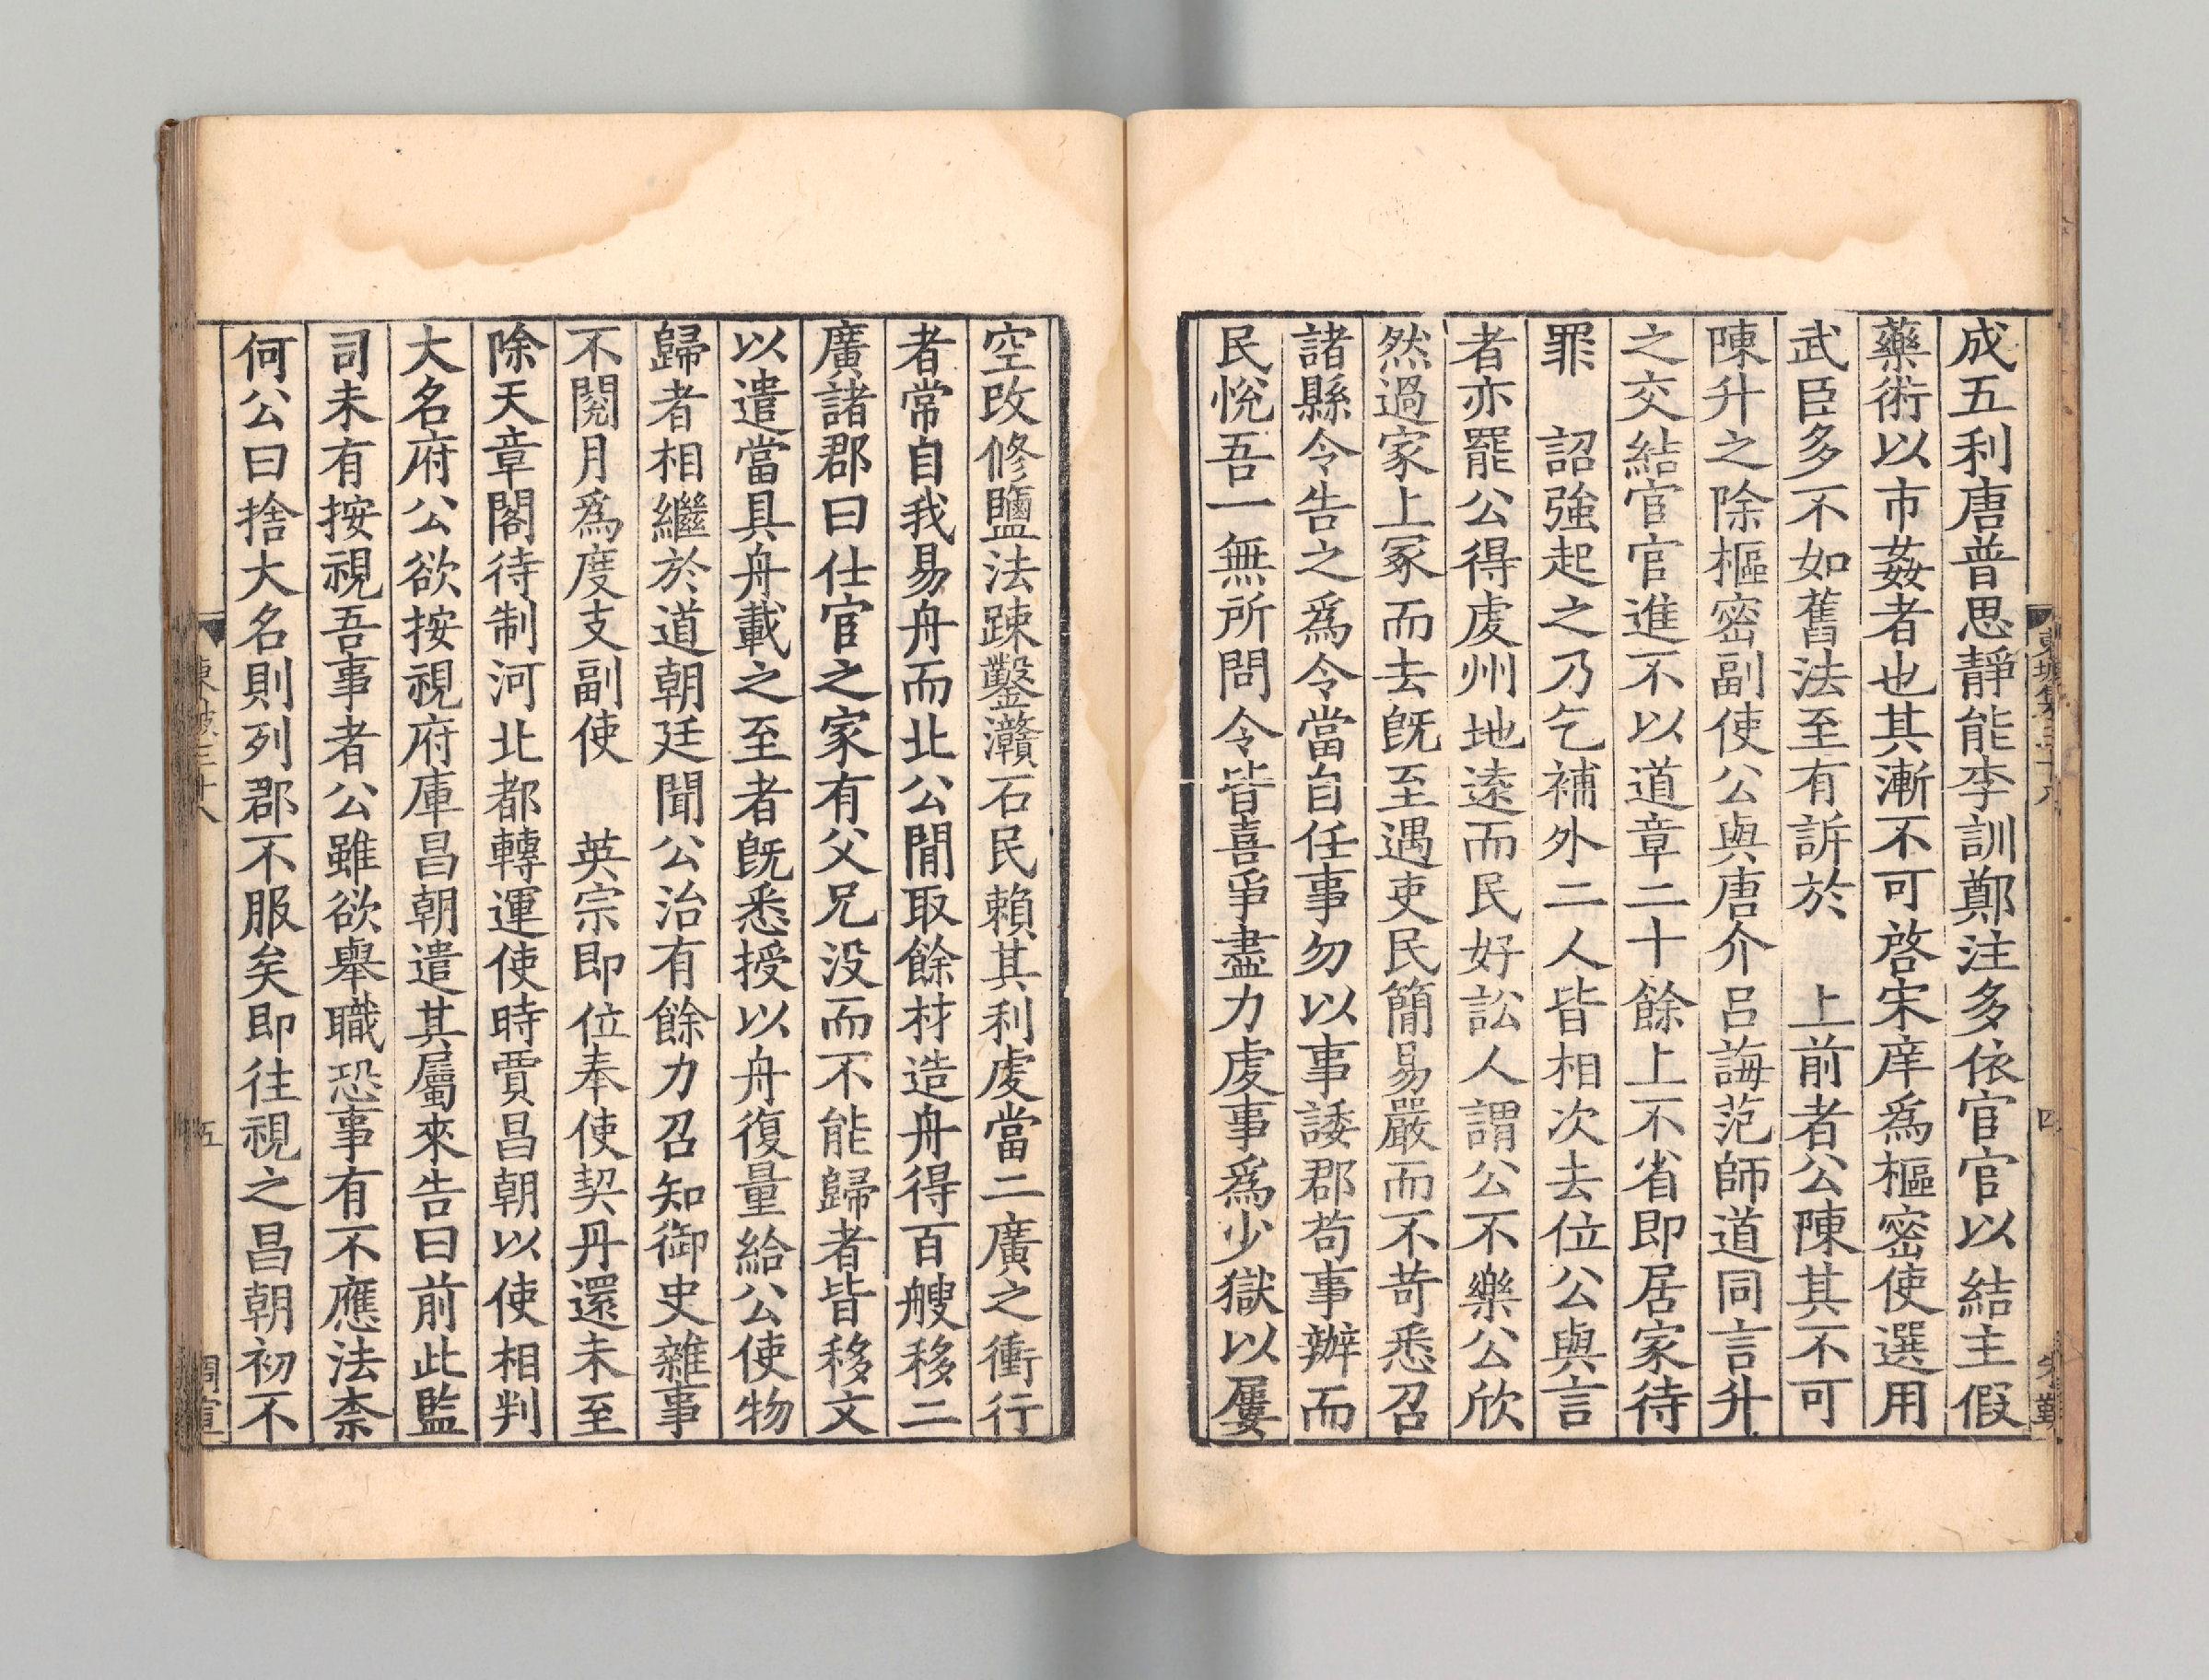 成五利唐普思靜能李訓鄭注多依宦官以結主假
藥術以市姦者也其漸不可啓宋庠爲樞密使選用
武臣多不如舊法至有訴於　上前者公陳其不可
陳升之除樞密副使公與唐介呂誨范師道同言升
之交結宦官進不以道章二十餘上不省即居家待
罪　詔強起之乃乞補外二人皆相次去位公與言
者亦罷公得虔州地遠而民好訟人謂公不樂公欣
然過家上冢而去既至遇吏民簡易嚴而不苛悉召
諸縣令告之爲令當自任事勿以事諉郡苟事辦而
民悅吾一無所問令皆喜爭盡力虔事爲少獄以屢
空改修鹽法踈鑿灨石民賴其利虔當二廣之衝行
者常自我易舟而北公閒取餘材造舟得百艘移二
廣諸郡曰仕宦之家有父兄没而不能歸者皆移文
以遣當具舟載之至者既悉授以舟復量給公使物
歸者相繼於道朝廷聞公治有餘力召知御史雜事
不閱月爲度支副使　英宗即位奉使契丹還未至
除天章閣待制河北都轉運使時賈昌朝以使相判
大名府公欲按視府庫昌朝遣其屬來告曰前此監
司未有按視吾事者公雖欲舉職恐事有不應法柰
何公曰捨大名則列郡不服矣即往視之昌朝初不
五